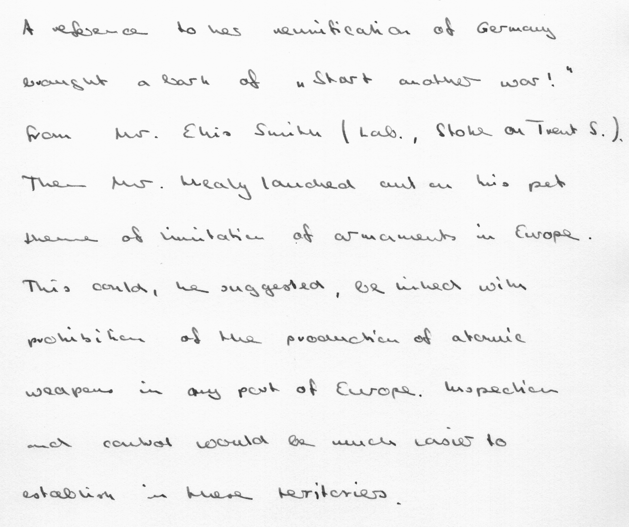 A reference to her reunification of Germany
brought a bark of "Start another war!"
from Mr. Ellis Smith (Lab., Stoke on Trent S.).
Then Mr. Healy launched out on his pet
theme of limitation of armaments in Europe.
This could, he suggested, be linked with
prohibition of the production of atomic
weapons in any part of Europe. Inspection
and control would be much easier to
establish in these territories.